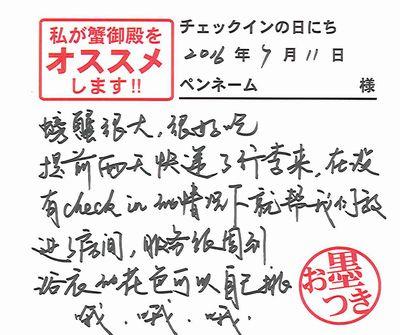 私が蟹御殿を
オススメ
します!!
チェックインの日にち
2016年9月11日
ペンネーム 様
螃蟹很大，很好吃
提前两天快递了行李来，在没
有check in的情况下就帮我们放
进了房间，服务很周到
浴衣的花色可以自己挑
哦．哦．哦．
お墨つき